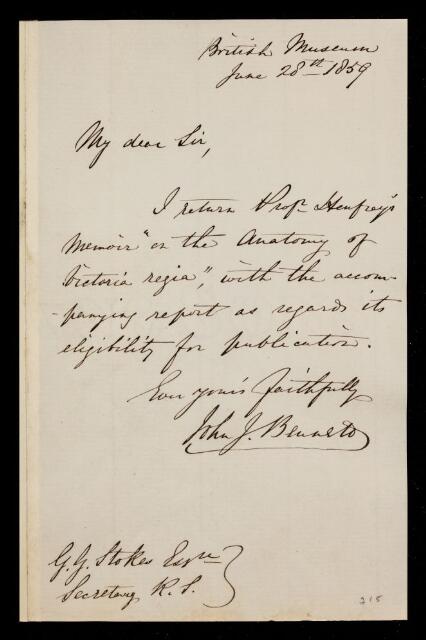 British Museum
June 28th 1859
My dear Sir,
I return Profr. Henfrey's
Memoir "on the Anatomy of
Victoria regia", with the accom-
-panying report as regards its
eligibility for publication.
Ever yours faithfully
John J. Bennett
G. G. Stokes Esqre
Secretary R. S.
218